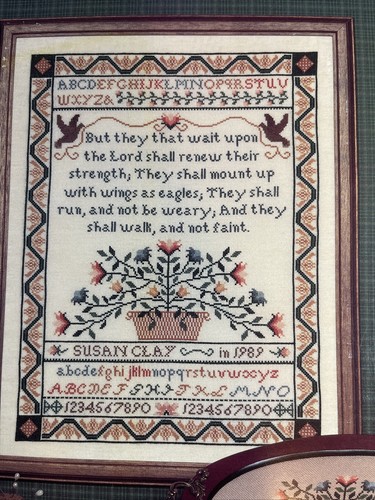 ABCDEFGHIJKLMNOPQRSTUV
WXYZ&
But they that wait upon
the Lord shall renew their
strength; They shall mount up
with wings as eagles; They shall
run, and not be weary; And they
shall walk, and not faint.
SUSAN CLAY in 1989
abcdefghijklmnopqrstuvwxyz
ABCDEFGHIJKLMNO
1234567890 1234567890